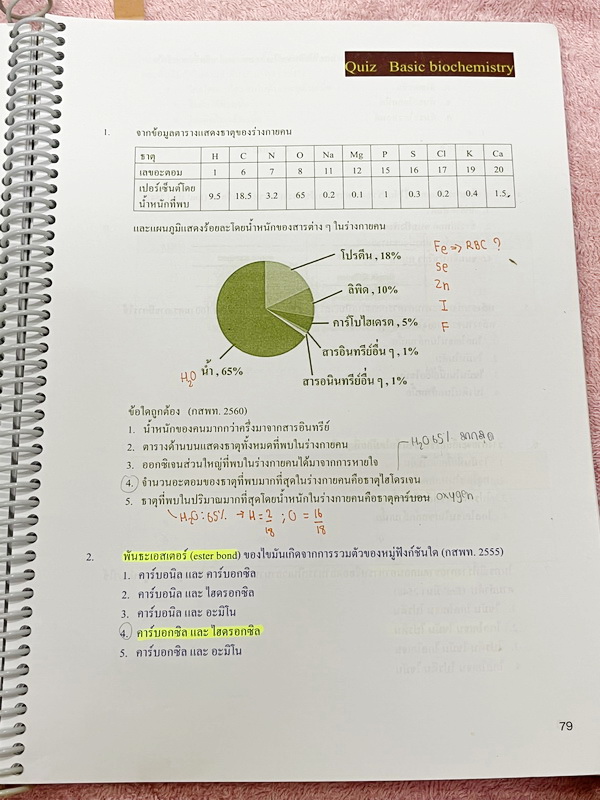 Quiz Basic biochemistry
1. จากข้อมูลตารางแสดงธาตุของร่างกายคน
ธาตุ H C N O Na Mg P S Cl K Ca
เลขอะตอม 1 6 7 8 11 12 15 16 17 19 20
เปอร์เซ็นต์โดยน้ำหนักที่พบ 9.5 18.5 3.2 65 0.2 0.1 1 0.3 0.2 0.4 1.5
และแผนภูมิแสดงร้อยละโดยน้ำหนักของสารต่าง ๆ ในร่างกายคน
โปรตีน , 18%
Fe => RBC ?
Se
ลิพิด , 10%
Zn
I
คาร์โบไฮเดรต , 5%
F
สารอินทรีย์อื่น ๆ , 1%
H₂O น้ำ , 65%
สารอนินทรีย์อื่น ๆ , 1%
ข้อใดถูกต้อง (กสพท. 2560)
1. น้ำหนักของคนมากกว่าครึ่งมาจากสารอินทรีย์
2. ตารางด้านบนแสดงธาตุทั้งหมดที่พบในร่างกายคน
H₂O 65%
3. ออกซิเจนส่วนใหญ่ที่พบในร่างกายคนได้มาจากการหายใจ
4. จำนวนอะตอมของธาตุที่พบมากที่สุดในร่างกายคนคือธาตุไฮโดรเจน
5. ธาตุที่พบในปริมาณมากที่สุดโดยน้ำหนักในร่างกายคนคือธาตุคาร์บอน oxygen
H₂O : 65% → H = 2/18 ; O = 16/18
2. พันธะเอสเตอร์ (ester bond) ของไขมันเกิดจากการรวมตัวของหมู่ฟังก์ชันใด (กสพท. 2555)
1. คาร์บอนิล และ คาร์บอกซิล
2. คาร์บอนิล และ ไฮดรอกซิล
3. คาร์บอนิล และ อะมิโน
4. คาร์บอกซิล และ ไฮดรอกซิล
5. คาร์บอกซิล และ อะมิโน
79